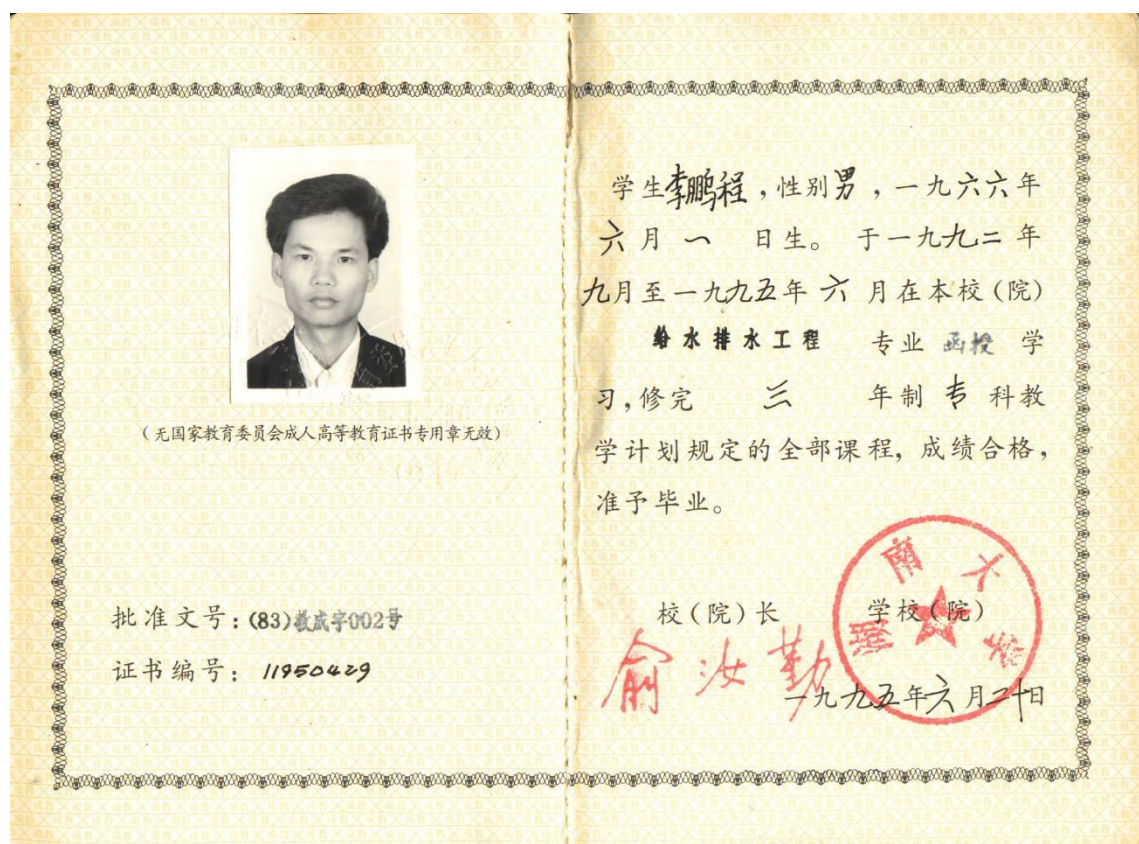 (无国家教育委员会成人高等教育证书专用章无效)
批准文号:(83)教成字002号
证书编号: 11950429
学生李鹏程,性别男,一九六六年
六月一日生。于一九九二年
九月至一九九五年六月在本校(院)
给水排水工程 专业 函授 学
习,修完 三 年制 专 科教
学计划规定的全部课程,成绩合格,
准予毕业。
校(院)长 学校(院)
俞汝勤
湖南大学
一九九五年六月二十日